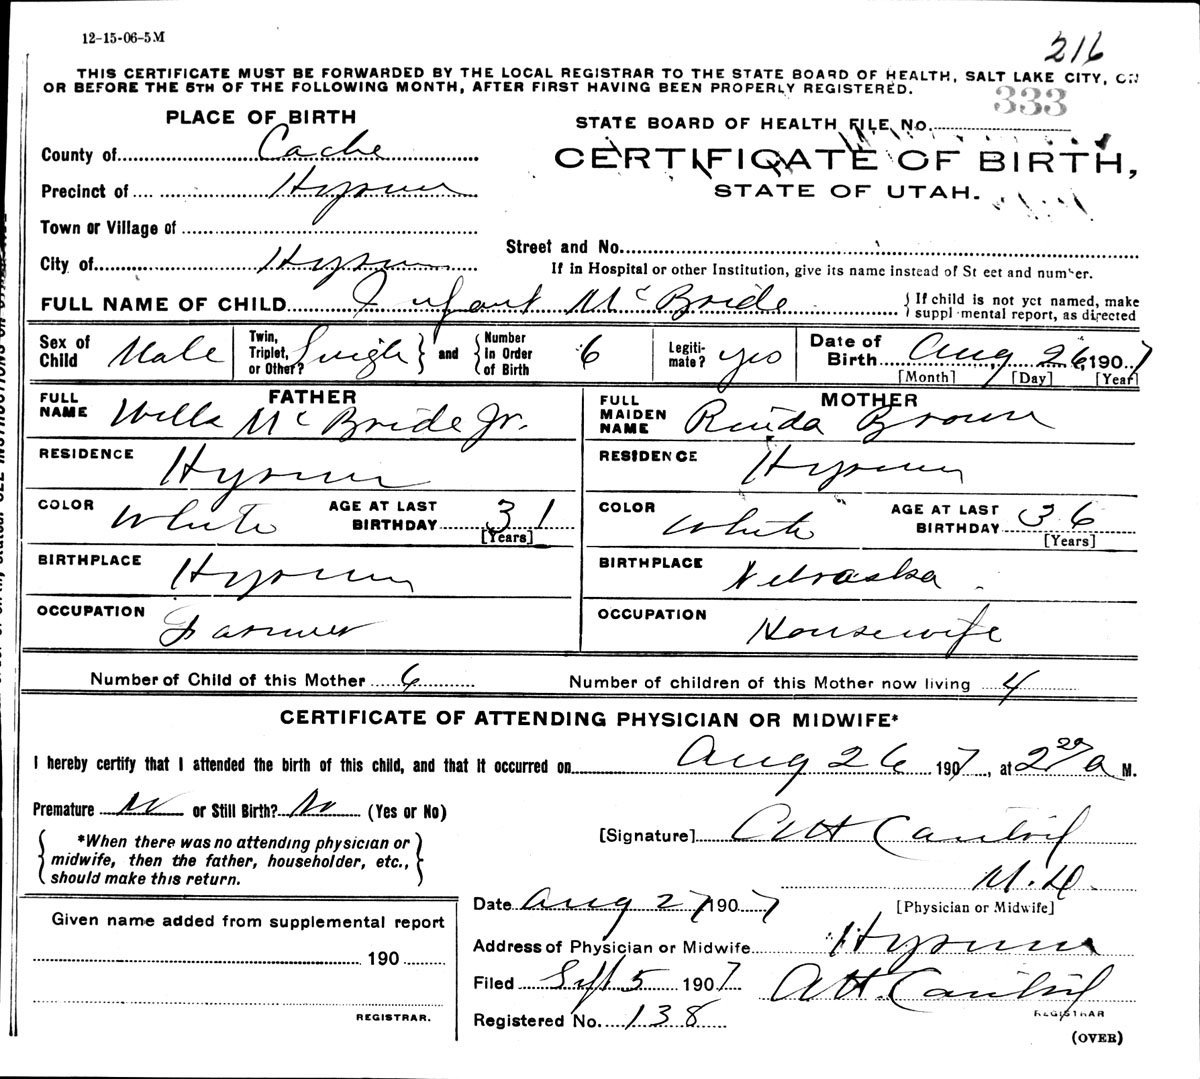 12-15-06-5M
216
THIS CERTIFICATE MUST BE FORWARDED BY THE LOCAL REGISTRAR TO THE STATE BOARD OF HEALTH, SALT LAKE CITY, ON
OR BEFORE THE 5TH OF THE FOLLOWING MONTH, AFTER FIRST HAVING BEEN PROPERLY REGISTERED.
333
PLACE OF BIRTH
STATE BOARD OF HEALTH FILE NO.
County of Cache
CERTIFICATE OF BIRTH,
STATE OF UTAH.
Precinct of Hyrum
Town or Village of
Street and No.
City of Hyrum
If in Hospital or other Institution, give its name instead of Street and number.
FULL NAME OF CHILD Infant McBride
If child is not yet named, make
supplemental report, as directed
Sex of Child Male
Twin, Triplet, or Other? Single and Number In Order of Birth 6
Legitimate? yes
Date of Birth Aug 26, 1907
[Month] [Day] [Year]
FATHER
FULL NAME Wells McBride Jr.
MOTHER
FULL MAIDEN NAME Rinda Brown
RESIDENCE Hyrum
RESIDENCE Hyrum
COLOR White AGE AT LAST BIRTHDAY 31
[Years]
COLOR White AGE AT LAST BIRTHDAY 36
[Years]
BIRTHPLACE Hyrum
BIRTHPLACE Nebraska
OCCUPATION Farmer
OCCUPATION Housewife
Number of Child of this Mother 6 Number of children of this Mother now living 4
CERTIFICATE OF ATTENDING PHYSICIAN OR MIDWIFE*
I hereby certify that I attended the birth of this child, and that it occurred on Aug 26 1907, at 2 20 a M.
Premature No or Still Birth? No (Yes or No)
*When there was no attending physician or
midwife, then the father, householder, etc.,
should make this return.
[Signature] A H Cantril
M.D.
[Physician or Midwife]
Date Aug 27 1907
Given name added from supplemental report
190
REGISTRAR.
Address of Physician or Midwife Hyrum
Filed Sept 5 1907 A H. Cantril
REGISTRAR
Registered No. 138
(OVER)